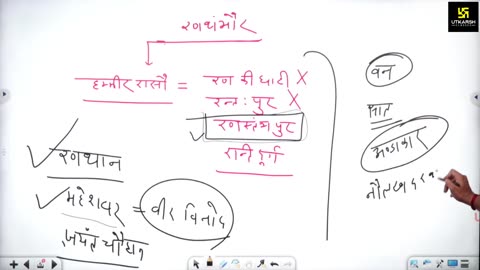 रणथंभौर
हम्मीर रासौ = रण की घाटी X
रन्तःपुर X
✓ रणस्तम्भपुर
रानी दुर्ग
✓ रणथान
✓ महेश्वर = वीर विनोद
जयंत चौहान
वन
सात
अण्डाकार
नौलखा दरव
UTKARSH